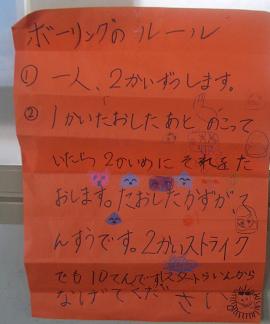 ボーリングのルール
① 一人、2かいずつします。
② 1かいたおしたあと、のこって
いたら2かいめにそれをた
おします。たおしたかずが、て
んすうです。2かいストライク
でも10てんです。スタートらいんから
なげてください